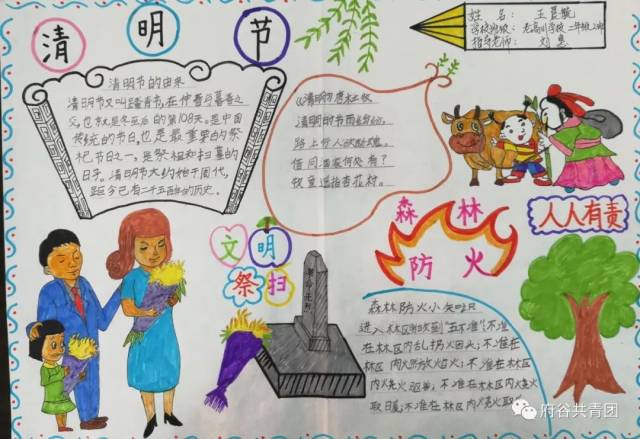 清明节
姓名：王
学校班级：老高川学校二年级2班
指导老师：刘慧
清明节的由来
清明节又叫踏青节，在仲春与暮春之
交，也就是冬至后的第108天。是中国
传统的节日，也是最重要的祭
祀节日之一，是祭祖和扫墓的
日子。清明节大约始于周代，
距今已有二千五百多年的历史。
清明时节雨纷纷，
路上行人欲断魂。
借问酒家何处有？
牧童遥指杏花村。
文明
祭扫
革命烈士
森林
防火
人人有责
森林防火小知识
进入林区时做到"五不准"：不准
在林区内乱扔火因头；不准在
林区内燃放焰火；不准在林区
内烧火驱兽；不准在林区内烧火
取暖；不准在林区内烧火取
府谷共青团